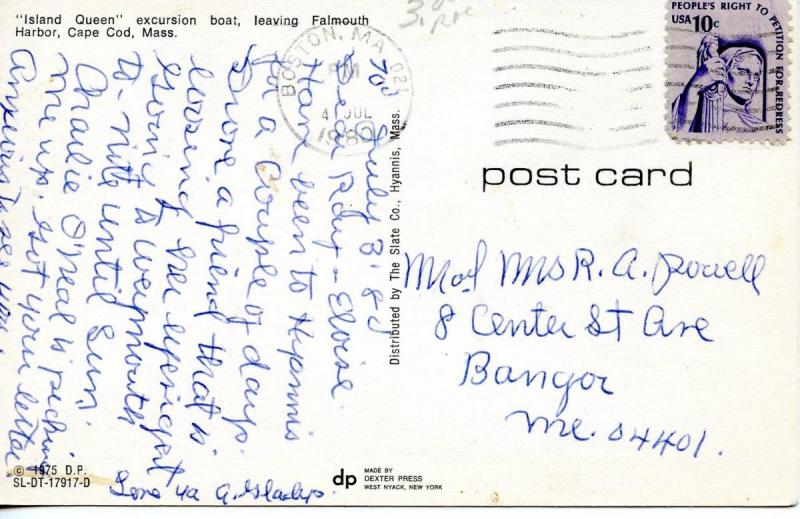 "Island Queen" excursion boat, leaving Falmouth
Harbor, Cape Cod, Mass.
July 3, 80
Dear Ray - Eloise.
Have been to Hyannis
for a couple of days.
Drove a friend that is
loosing her eyesight
Going to Weymouth
to-nite until Sun.
Charlie O'Neal is picking
me up. Got your letter
anxious to see you.
Love A. Gladys
© 1975 D.P.
SL-DT-17917-D
Distributed by The Slate Co., Hyannis, Mass.
BOSTON, MA 021
PM
4 JUL
1980
PEOPLE'S RIGHT TO PETITION FOR REDRESS
USA 10c
post card
M of Mrs R. A. Powell
8 Center St Ave
Bangor
Me. 04401.
dp
MADE BY
DEXTER PRESS
WEST NYACK, NEW YORK